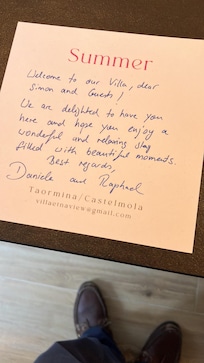 Summer
Welcome to our Villa, dear
Simon and Guests!
We are delighted to have you
here and hope you enjoy a
wonderful and relaxing stay
filled with beautiful moments.
Best regards,
Daniele and Raphael
Taormina/Castelmola
villaetnaview@gmail.com